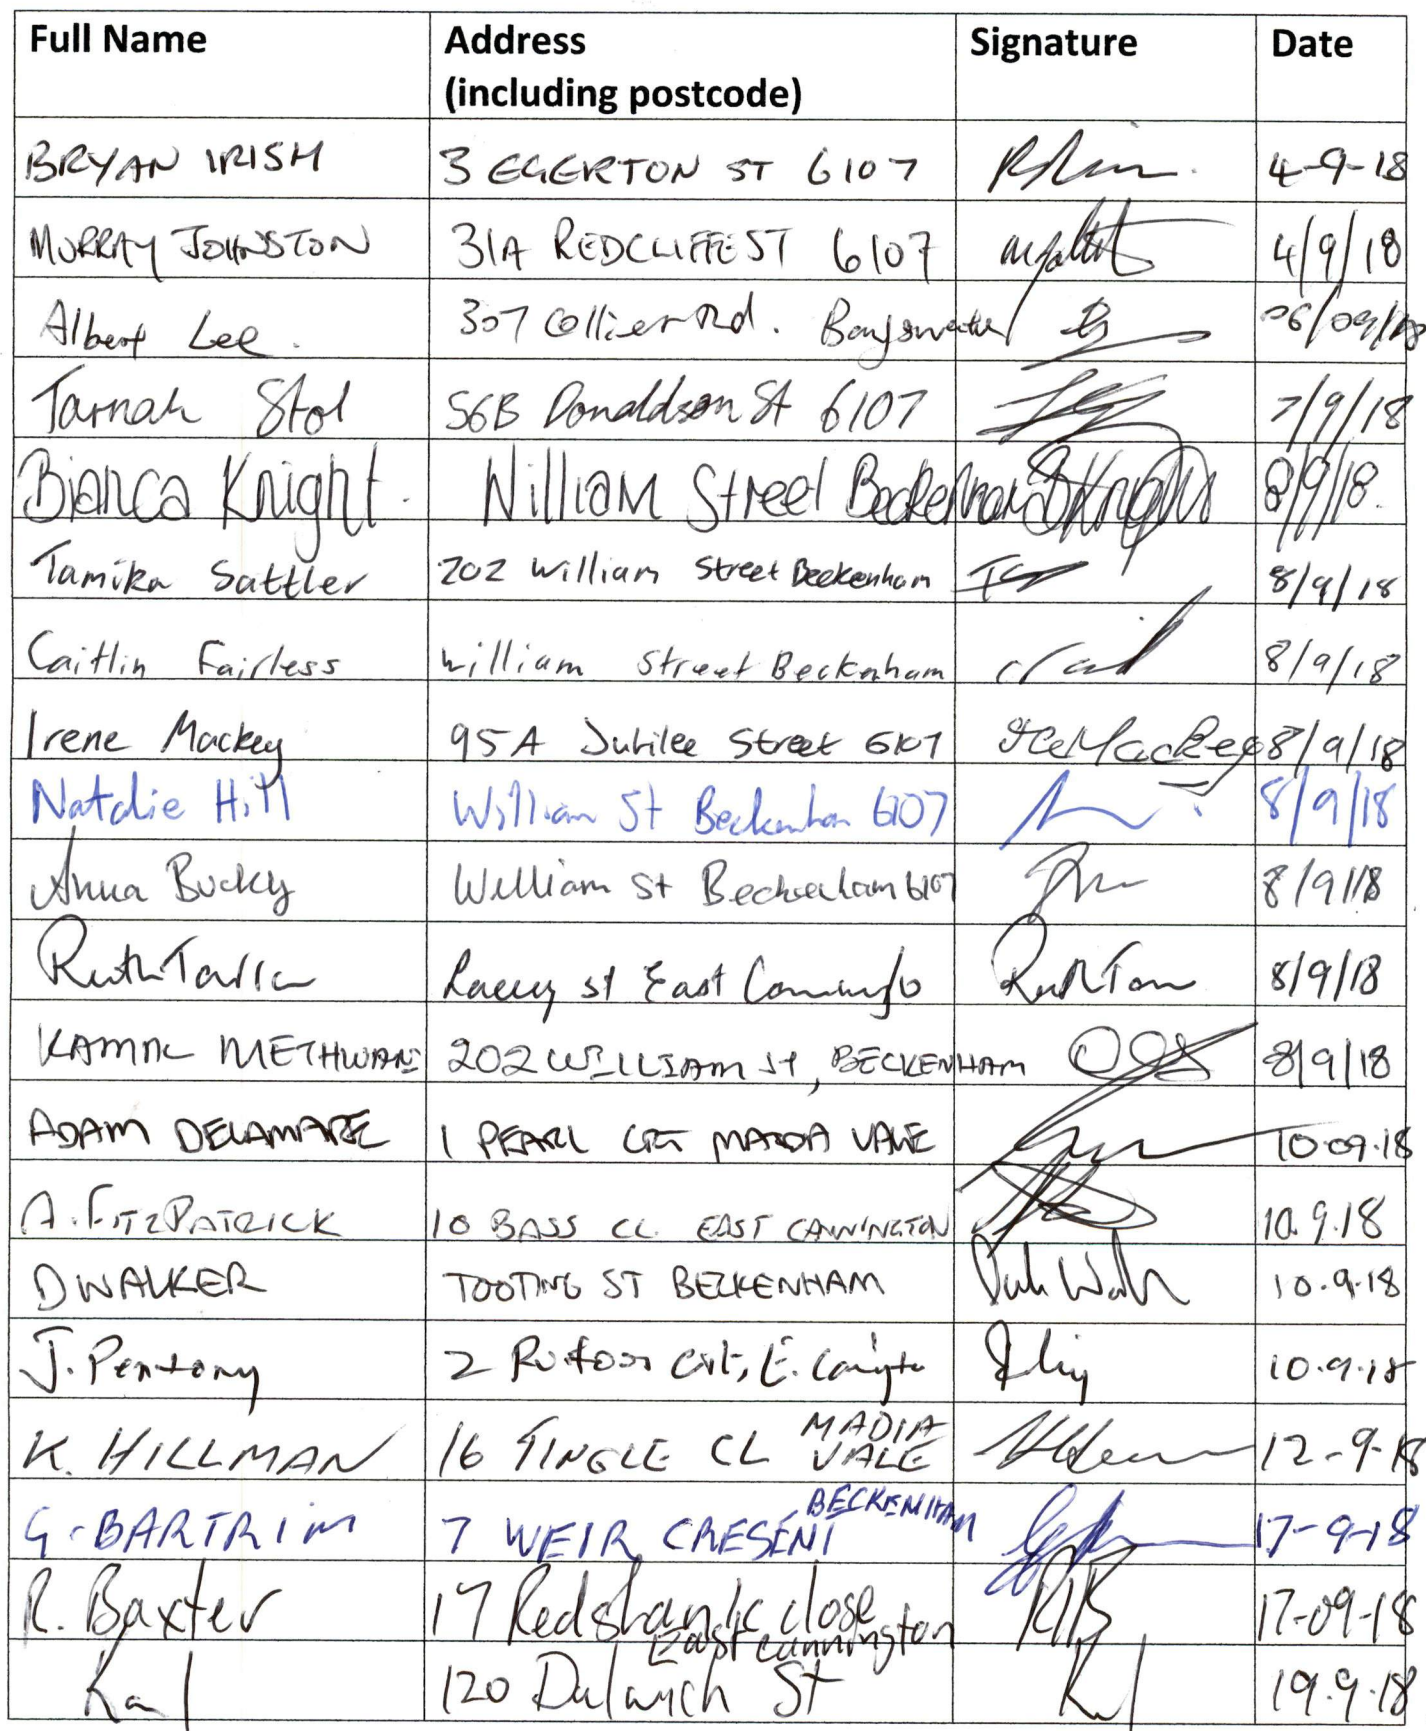 Full Name Address Signature Date
(including postcode)
BRYAN IRISH 3 EGERTON ST 6107 4-9-18
MURRAY JOHNSTON 31A REDCLIFFE ST 6107 4/9/18
Albert Lee. 307 Collier Rd. Bayswater 06/09/18
Tarnah Stol 56B Donaldson St 6107 7/9/18
Bianca Knight. William Street Beckenham 8/9/18.
Tamika Sattler 202 William Street Beckenham TS 8/9/18
Caitlin Fairless William Street Beckenham 8/9/18
Irene Mackey 95A Jubilee Street 6107 Mackey 8/9/18
Natalie Hill William St Beckenham 6107 8/9/18
Anna Bucky William St Beckenham 6107 8/9/18
Ruth St East 8/9/18
KAMAL METHWANI 202 WILLIAM St, BECKENHAM 8/9/18
ADAM DELAMARE 1 PEARL CRT MAIDA VALE 10.09.18
A. FITZPATRICK 10 BASS CL EAST CANNINGTON 10.9.18
D WALKER TOOTING ST BECKENHAM 10.9.18
J. Pentony 2 E. 10.9.18
MADIA
K. HILLMAN 16 TINGLE CL VALE 12-9-18
BECKENHAM
G. BARTRIM 7 WEIR CRESENT 17-9-18
R. Baxter 17 Redshank close RB 17-09-18
East cannington
Karl 120 Dulwich St 19.9.18